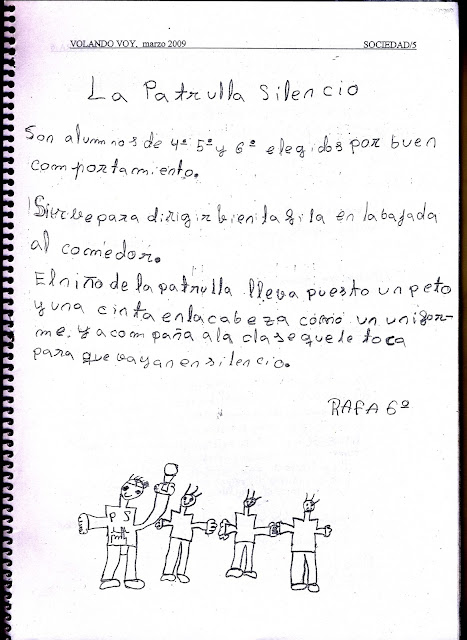 VOLANDO VOY, marzo 2009 SOCIEDAD/5
La Patrulla Silencio
Son alumnos de 4º 5º y 6º elegidos por buen
comportamiento.
Sirve para dirigir bien la fila en la bajada
al comedor.
El niño de la patrulla lleva puesto un peto
y una cinta en la cabeza como un unifor-
me. y acompaña a la clase que le toca
para que vayan en silencio.
RAFA 6º
P S